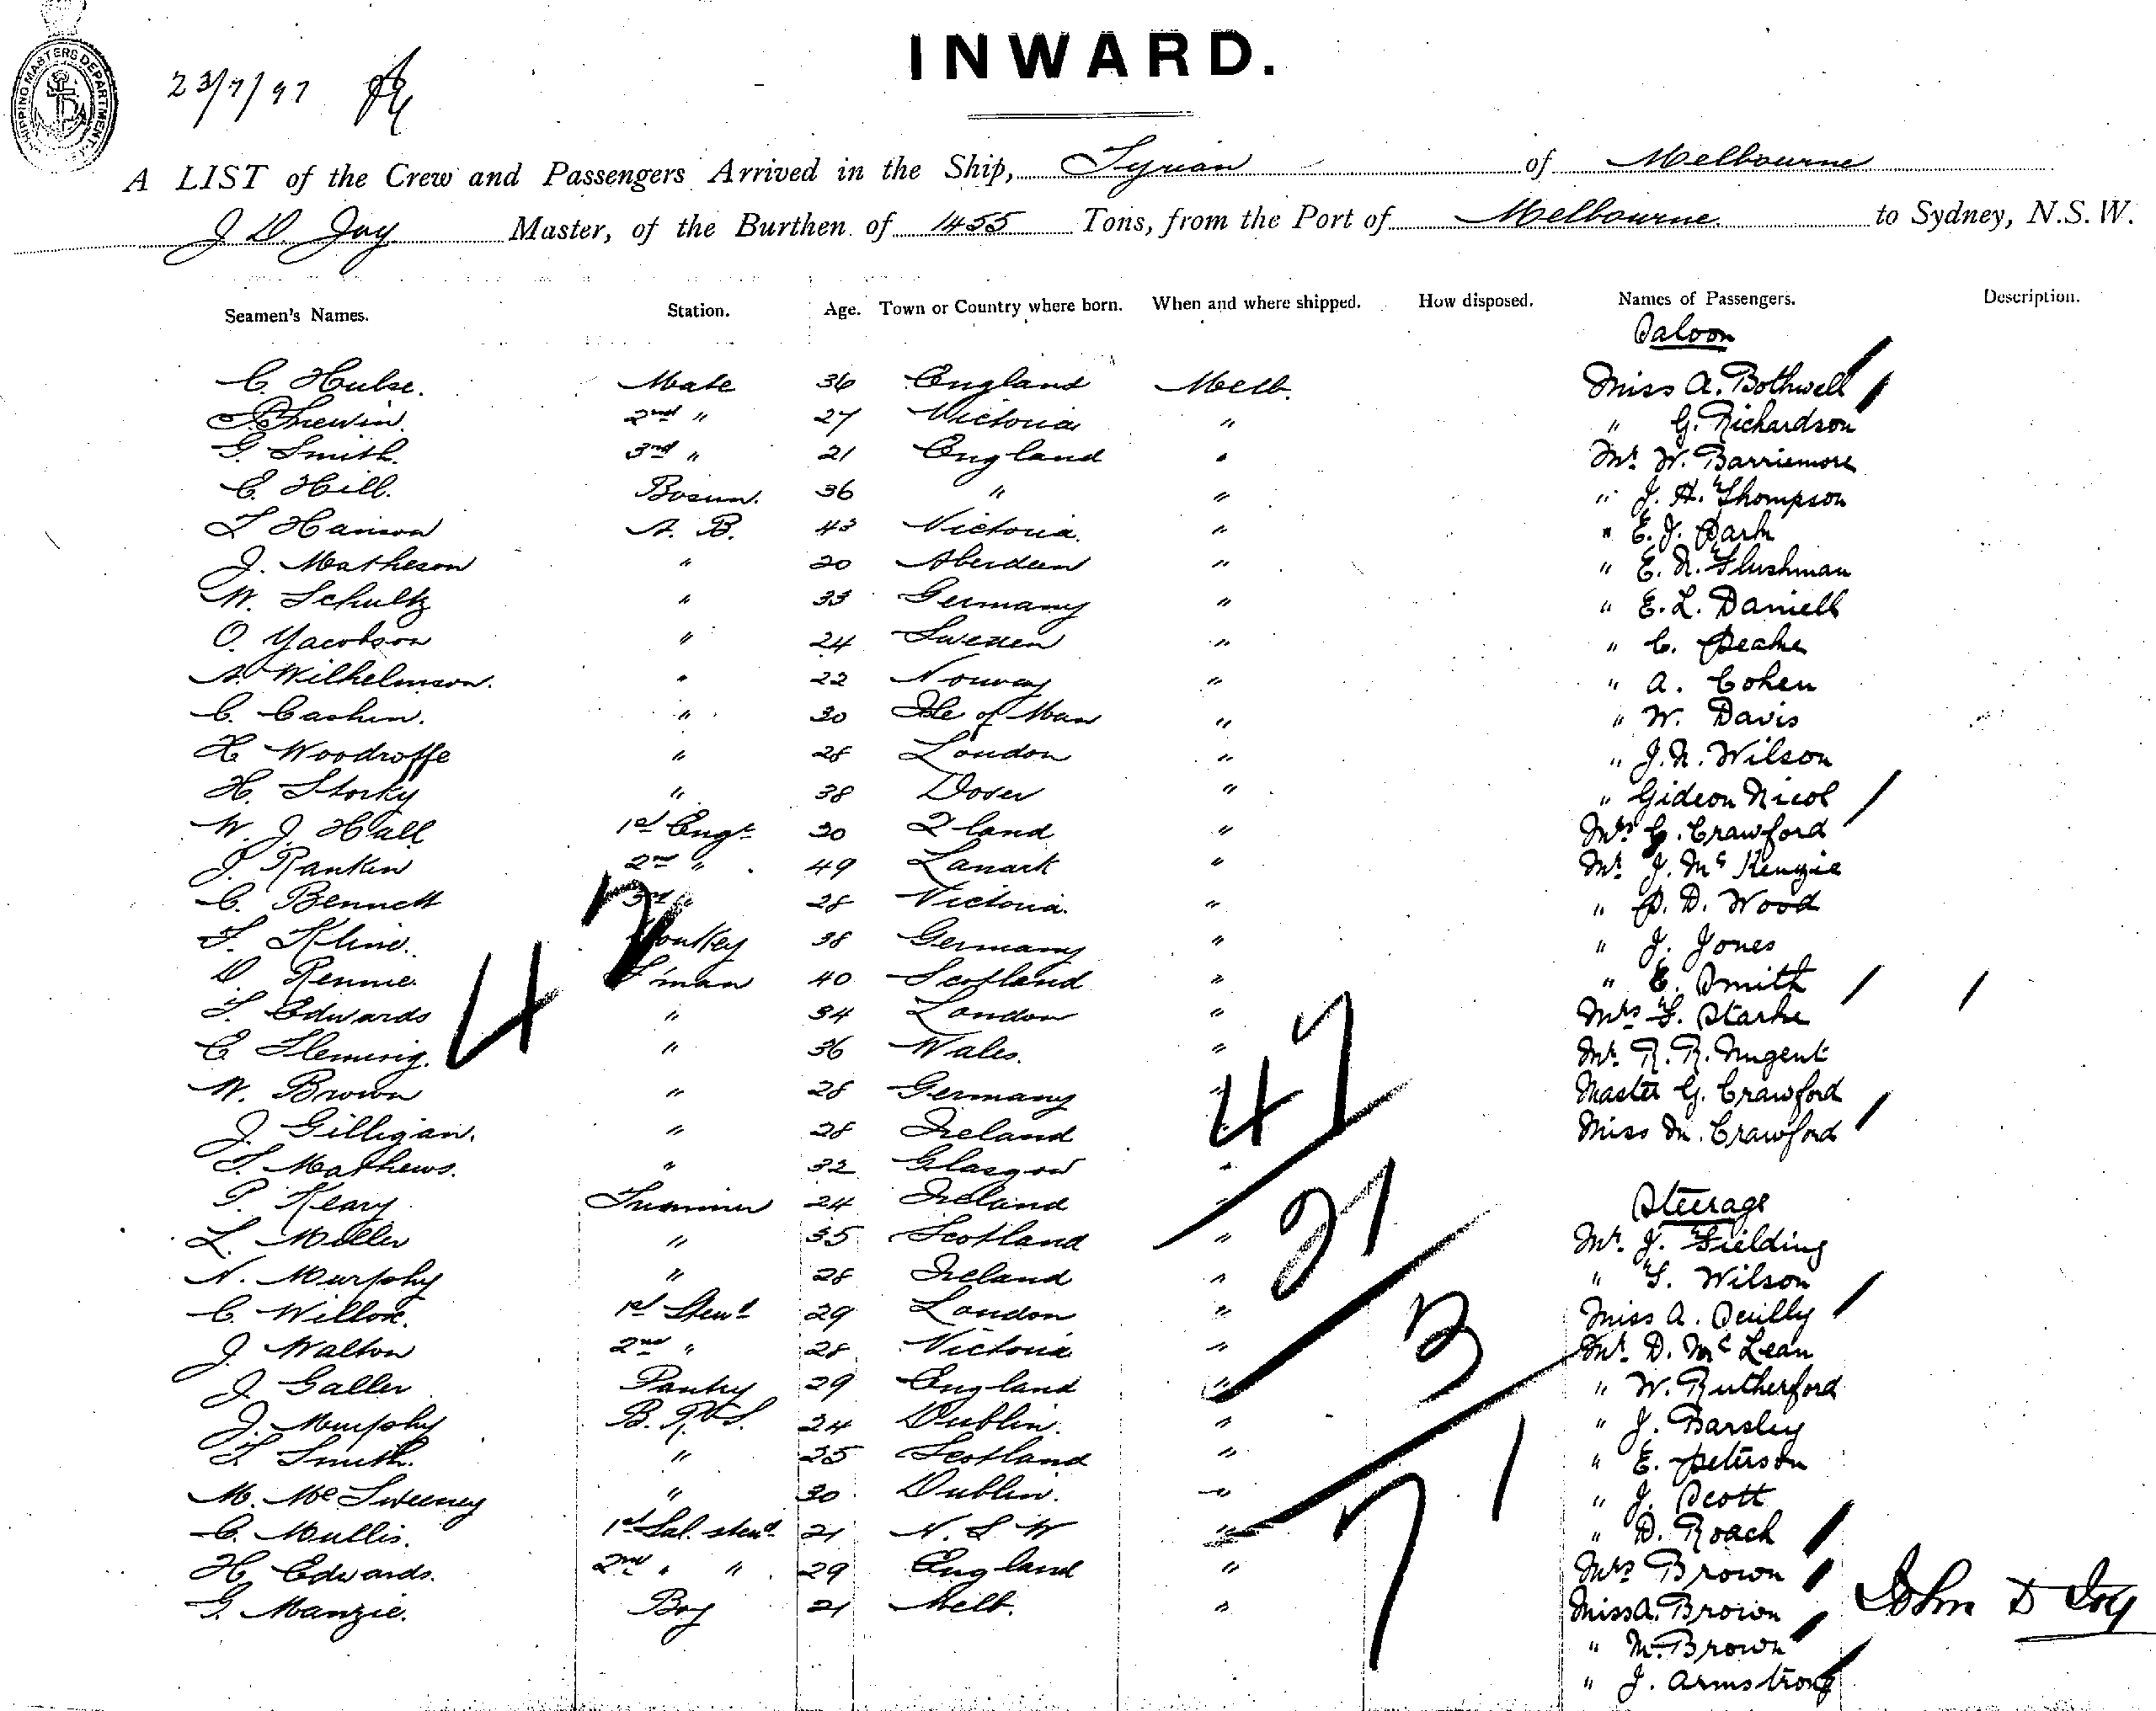 SHIPPING MASTERS DEPARTMENT
23/7/97
INWARD.
A LIST of the Crew and Passengers Arrived in the Ship, Tyrian of Melbourne
J D. Joy Master, of the Burthen of 1455 Tons, from the Port of Melbourne. to Sydney, N.S.W.
Seamen's Names. Station. Age. Town or Country where born. When and where shipped. How disposed. Names of Passengers. Description.
Saloon
C. Hulse. Mate 36 England Melb. Miss A. Bothwell
2nd " 27 Victoria " " G. Richardson
G. Smith. 3rd " 21 England " Mr. W. Barriemore
C. Hill. Bosun. 36 " " " J. H. Thompson
T Hanson A. B. 43 Victoria. " " E. J. Park
J. Matheson " 20 Aberdeen " " E. N. Flushman
W. Schultz " 33 Germany " " E. L. Daniell
O. Yacobson " 24 Sweden " " C. Peake
A. Wilhelmson. " 22 Norway " " A. Cohen
C. Cashin. " 30 Isle of Man " " W. Davis
H Woodroffe " 28 London " " J. N. Wilson
H. Storky " 38 Dover " " Gideon Nicol
W. J. Hall 1st Engr 30 Q land " Mrs G. Crawford
J. Rankin 2nd " 49 Lanark " Mr. J. McKenzie
C. Bennett 3rd " 28 Victoria. " " P. D. Wood
F. Kline. Donkey 38 Germany " " J. Jones
D. Rennie. F'man 40 Scotland " " E. Smith
T. Edwards " 34 London " Mrs F. Starke
C Fleming. " 36 Wales. " Mr. R. R. Nugent
W. Brown " 28 Germany " Master G. Crawford
J. Gilligan. " 28 Ireland " Miss M. Crawford
T. Mathews. " 32 Glasgow "
P. Keary Trimmer 24 Ireland " Steerage
L. Miller " 35 Scotland " Mr. J. Fielding
N. Murphy " 28 Ireland " " T. Wilson
C. Willox. 1st Stewd 29 London " Miss A. Reilly
J. Walton 2nd " 28 Victoria " Mr. D. McLean
J. Galler Pantry 29 England " " W. Rutherford
J. Murphy B. R. S. 24 Dublin. " " J. Barsley
T. Smith. " 25 Scotland " " E. Peterson
M. McSweeney " 30 Dublin. " " J. Scott
C. Mullis. 1st Sal. stewd 21 N. S W " " D. Roach
H. Edwards. 2nd " " 29 England " Mrs Brown
G. Manzie. Boy 21 Melb. " Miss A. Brown
" M. Brown
" J. Armstrong
42
42
21
13
71
John D Joy